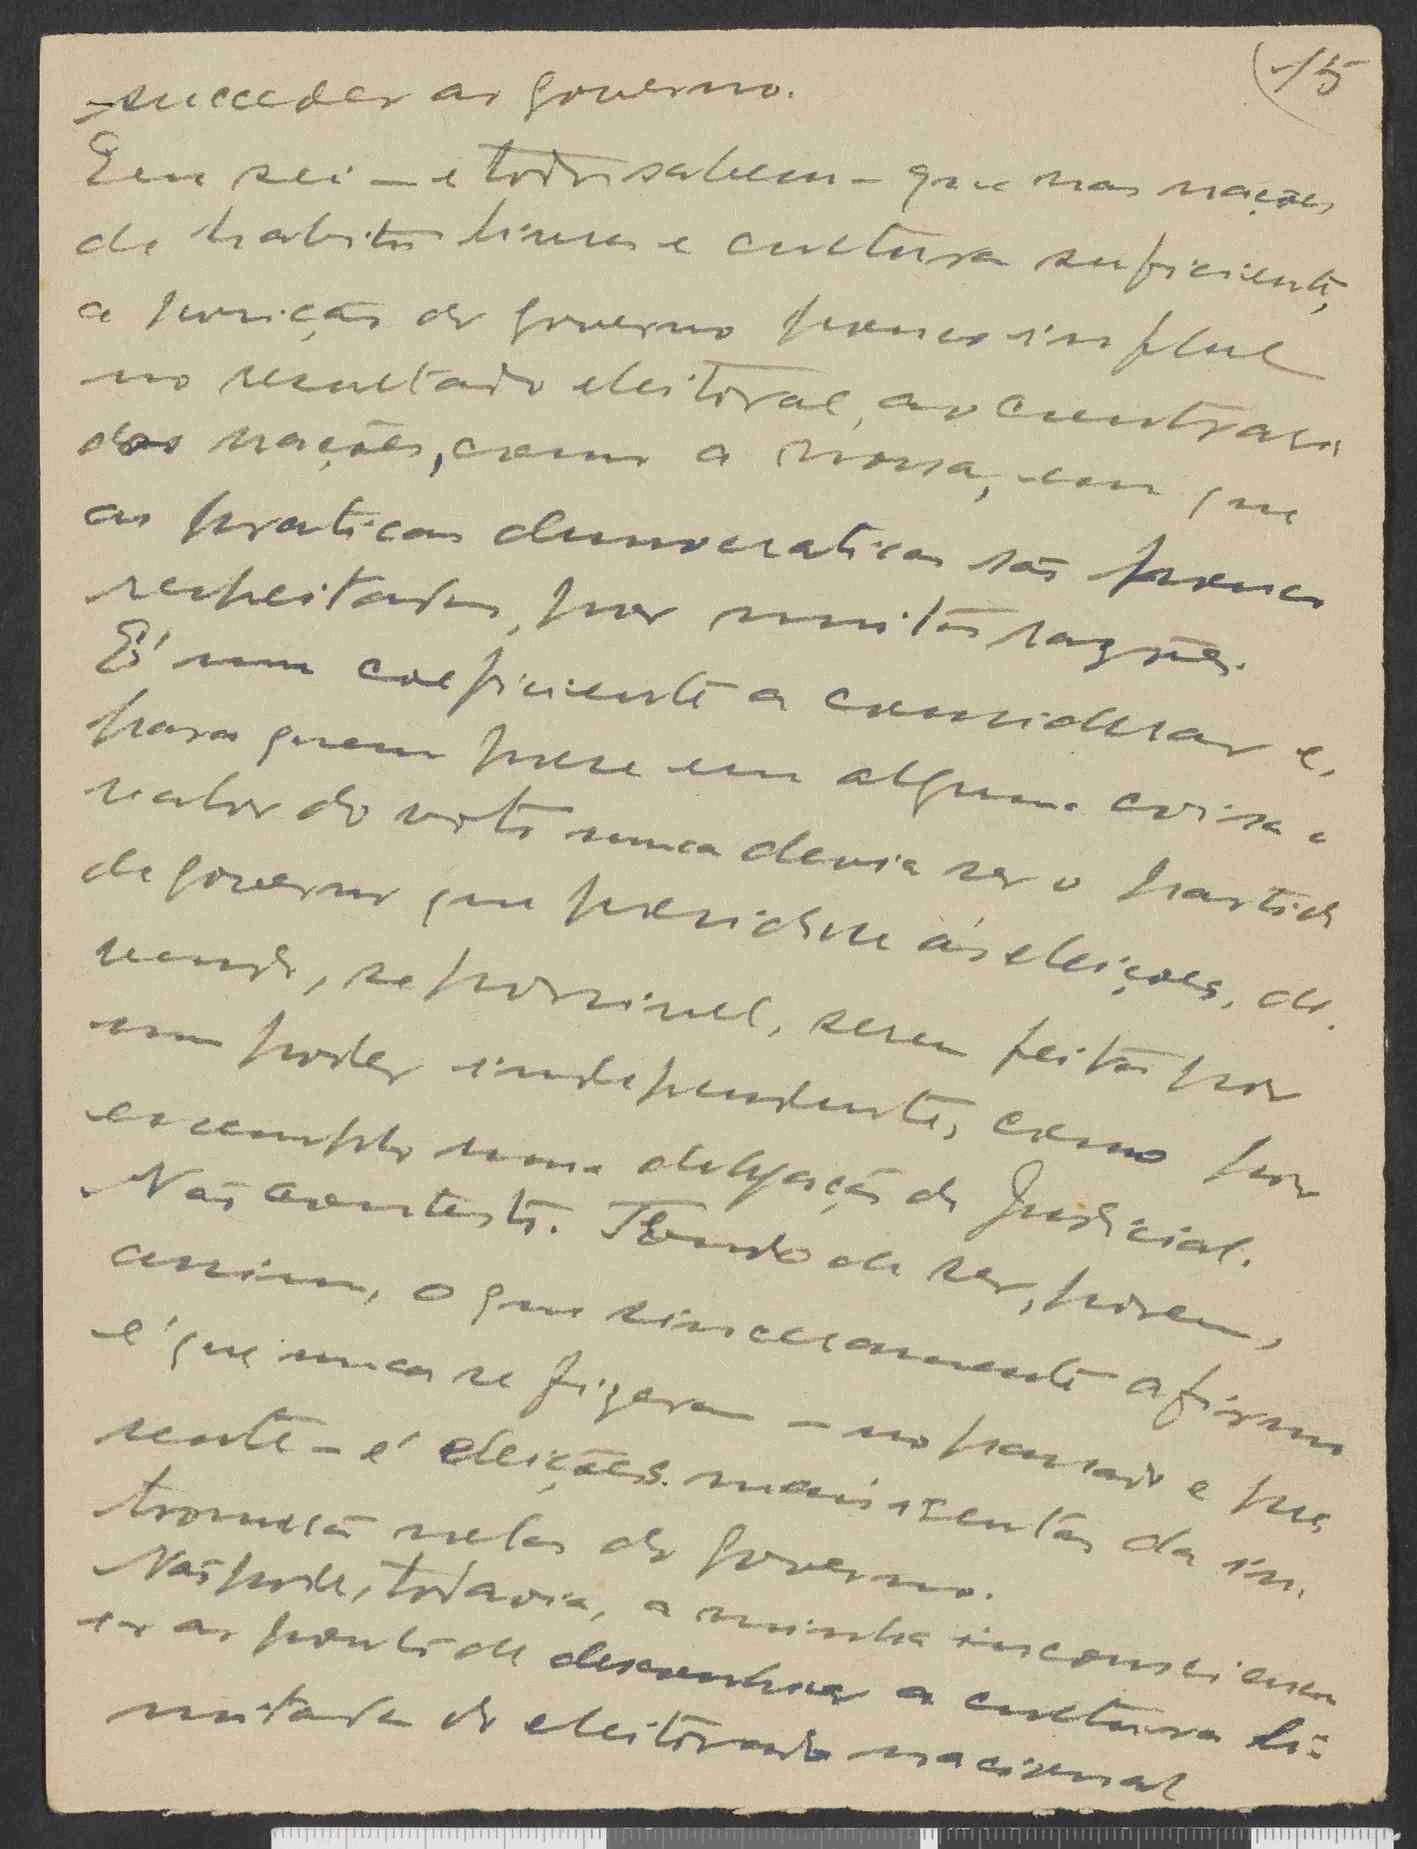 15
succeder ao governo.
Eu sei – e todos sabem – que nas nações
de habitos livres e cultura suficiente,
a posição do governo pouco influe
no resultado eleitoral, ao contrario
das nações, como a nossa, em que
as praticas democraticas são pouco
respeitadas, por muitas razões.
É um coeficiente a considerar e,
para quem preze em alguma coisa o
valor do voto nunca devia ser o partido
do governo que presidisse ás eleições, de-
vendo, se possivel, serem feitas por
um poder independente, como por
exemplo uma delegação do Judicial.
Não contesto. Tendo de ser, porem,
assim, o que sinceramente afirmo
é que nunca se fizeram – no passado e pre-
sente – é eleições mais isentas da in-
tromissão nelas do governo.
Não pode, todavia, a minha inconsciencia
ir ao ponto de desconhecer a cultura li-
mitada do eleitorado nacional